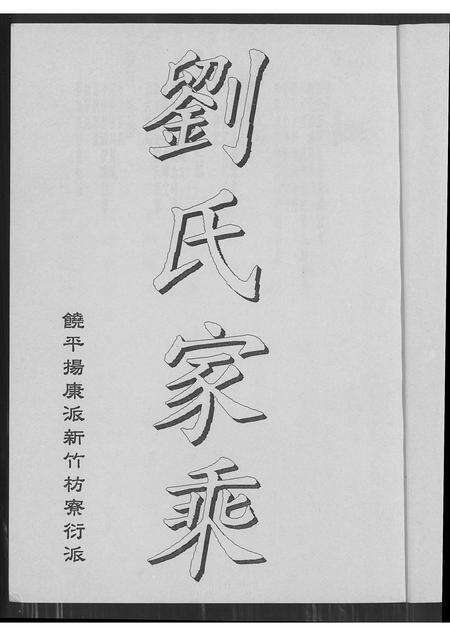 劉氏家乘
饒平揚康派新竹枋寮衍派